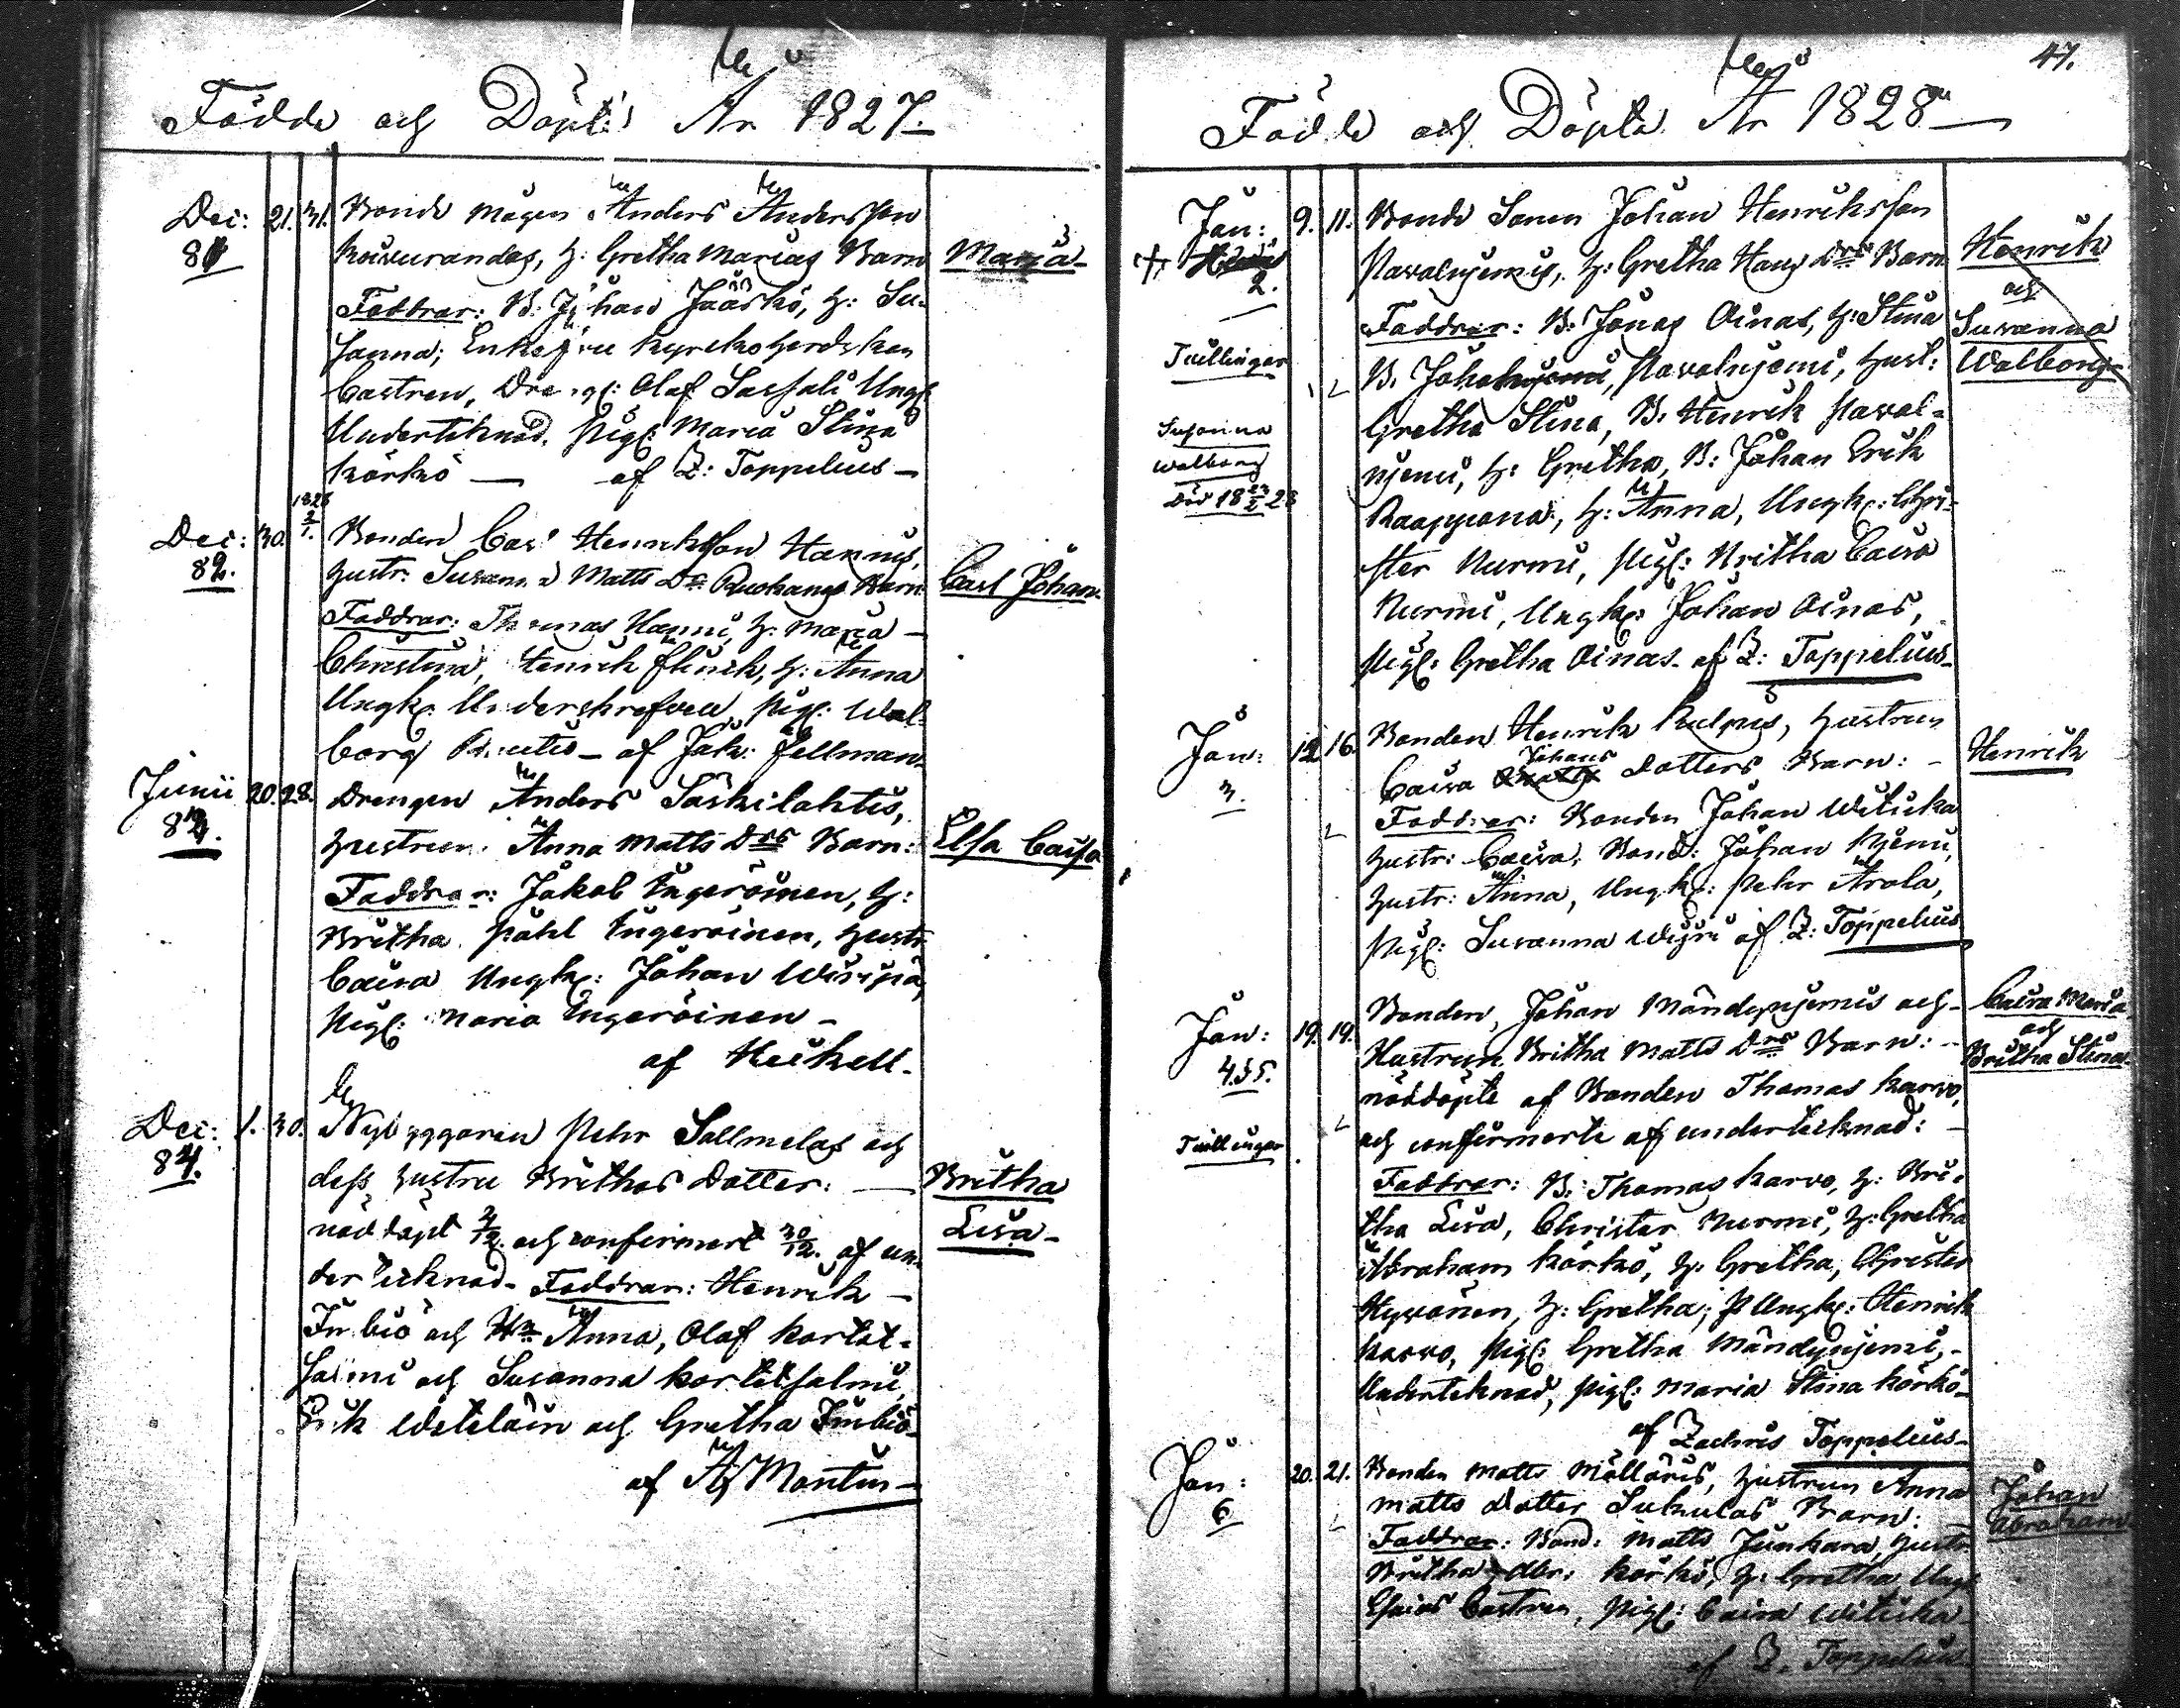 Födde och Döpte År 1827.
Dec: 21. 31. Bonde mågen Anders Andersson
81 Kuivurandas, h: Gretha Marias Barn Maria
Faddrar: B. Johan Jääskö, h: Su-
sanna; Enkefru Kyrkoherdskan
Castren, Dreng: Olof Sassali Ungk:
Underteknad, Pig: Maria Stina
Körkö — af Z: Toppelius —
1828
Dec: 30. 2/1. Bonden Carl Henriksson Hannus,
82. hustr: Susanna Matts Dr Ruokangs Barn Carl Johan.
Faddrar: Thomas Hannu, h: Maria —
Christina, Henrik flinck, h: Anna
Ungk: Underskrefven, Pig: Wal-
borg — af Jak: Fellman.
Junii 20. 28. Drengen Anders Saskilahtis,
83. hustrun Anna Matts Drs Barn: Elsa Caisa
Faddrar: Jakob Ingeröinen, h:
Britha Påhl Ingeröinen, hustr.
Caisa Ungk: Johan Wiripä,
Pig: Maria Ingeröinen —
af Heikell.
Dec: 1. 30. Nybyggaren Pehr Sallmelas och
84. dess hustru Brithas Dotter: — Britha
nöddöpt 2/12. och confirmert 30/12. af un- Lisa —
dertecknad. Faddrar: Henrik —
Imbiö och Hn Anna, Olof Kortet-
salmi och Susanna Kortetsalmi,
Erik Weteläin och Gretha Imbiö
af Montin —
47.
Födde och Döpte År 1828
Jan: 9. 11. Bonde Sonen Johan Henriksson
2. Pavalniemis, h: Gretha Hans Drs Barn Henrik
Faddrar: B. Jonas Oinas, h: Stina och
Tvillingar B. Johan Pavalniemi, hust: Susanna
Gretha Stina, B. Henrik Paval- Walborg
Susanna
Walborg
Död 18 23/2 28
niemi, h: Gretha, B: Johan Erik
Raappana, h: Anna, Ungk: Chri-
ster Nurmi, Pig: Britha Caisa
Nurmi, Ungk: Johan Oinas,
Pig: Gretha Oinas. af Z: Toppelius
Jan: 12. 16. Bonden Henrik Kulpus, hustrun
3. Caisa Johans Dotters Barn: — Henrik
Faddrar: Bonden Johan Wiliuka
hustr: Caisa, Bond: Johan Niemi,
hustr: Anna, Ungk: Pehr Arola,
Pig: Susanna af Z: Toppelius
Jan: 19. 19. Bonden, Johan Mändyniemis och Caisa Maria
4. & 5. Hustrun Britha Matts Drs Barn: — och
nöddöpte af Bonden Thomas Karvo, Britha Stina
Tvillingar och confirmerte af undertecknad: —
Faddrar: B: Thomas Karvo, h: Bri-
tha Lisa, Christer Nurmi, h: Gretha
Abraham Körkö, h: Gretha, Christer
Hyvönen, h: Gretha; Ungk: Henrik
Karvo, Pig: Gretha Mändyniemi, —
Undertecknad, Pig: Maria Stina Körkö —
af Zachris Toppelius —
Jan: 20. 21. Bonden Matts Mölläris, hustrun Anna
6 Matts Dotter Sukulas Barn: Johan
Faddrar: Bond: Matts Junkara, hustr. Abraham
Britha Abr: Körkö, h: Gretha, Ungk
Castren, Pig: Caisa Wiliuka
af Z. Toppelius